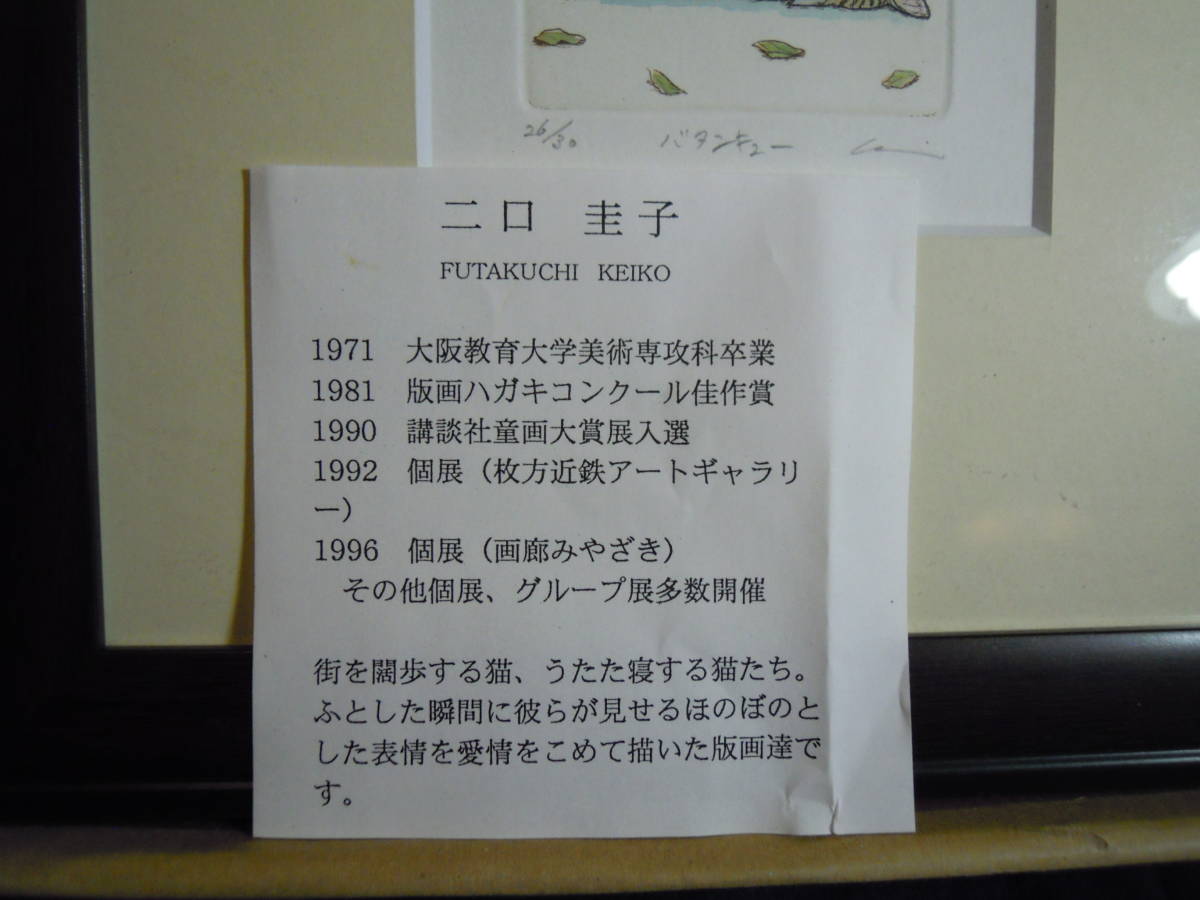 26/30 バタンキュー
二口 圭子
FUTAKUCHI KEIKO
1971 大阪教育大学美術専攻科卒業
1981 版画ハガキコンクール佳作賞
1990 講談社童画大賞展入選
1992 個展（枚方近鉄アートギャラリ
ー）
1996 個展（画廊みやざき）
その他個展、グループ展多数開催
街を闊歩する猫、うたた寝する猫たち。
ふとした瞬間に彼らが見せるほのぼのと
した表情を愛情をこめて描いた版画達で
す。